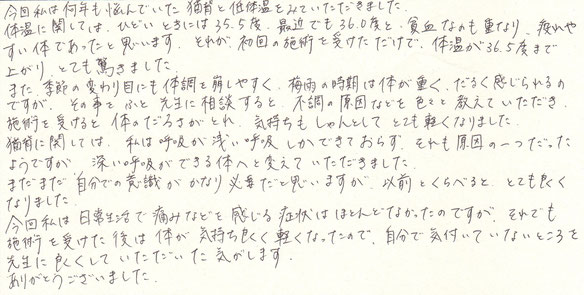 今回私は何年も悩んでいた猫背と低体温をみていただきました。
体温に関しては、ひどいときには35.5度、最近でも36.0度と、貧血なのも重なり、疲れや
すい体であったと思います。それが、初回の施術を受けただけで、体温が36.5度まで
上がり、とても驚きました。
また、季節の変わり目にも体調を崩しやすく、梅雨の時期は体が重く、だるく感じられるの
ですが、その事をふと先生に相談すると、不調の原因などを色々と教えていただき、
施術を受けると体のだるさがとれ、気持ちもしゃんとしてとても軽くなりました。
猫背に関しては、私は呼吸が浅い呼吸しかできておらず、それも原因の一つだった
ようですが、深い呼吸ができる体へと変えていただきました。
まだまだ自分での意識がかなり必要だと思いますが、以前とくらべると、とても良く
なりました。
今回私は日常生活で痛みなどを感じる症状はほとんどなかったのですが、それでも
施術を受けた後は体が気持ち良く軽くなったので、自分で気付いていないところを
先生に良くしていただいた気がします。
ありがとうございました。